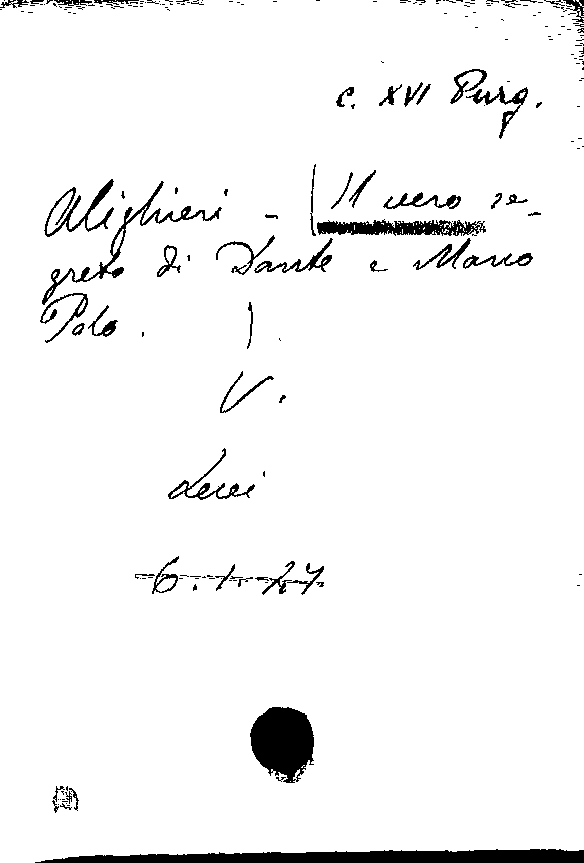 c. XVI Purg.
Alighieri - | Il vero se-
greto di Dante e Marco
Polo. |
V.
Levi
6.1.27